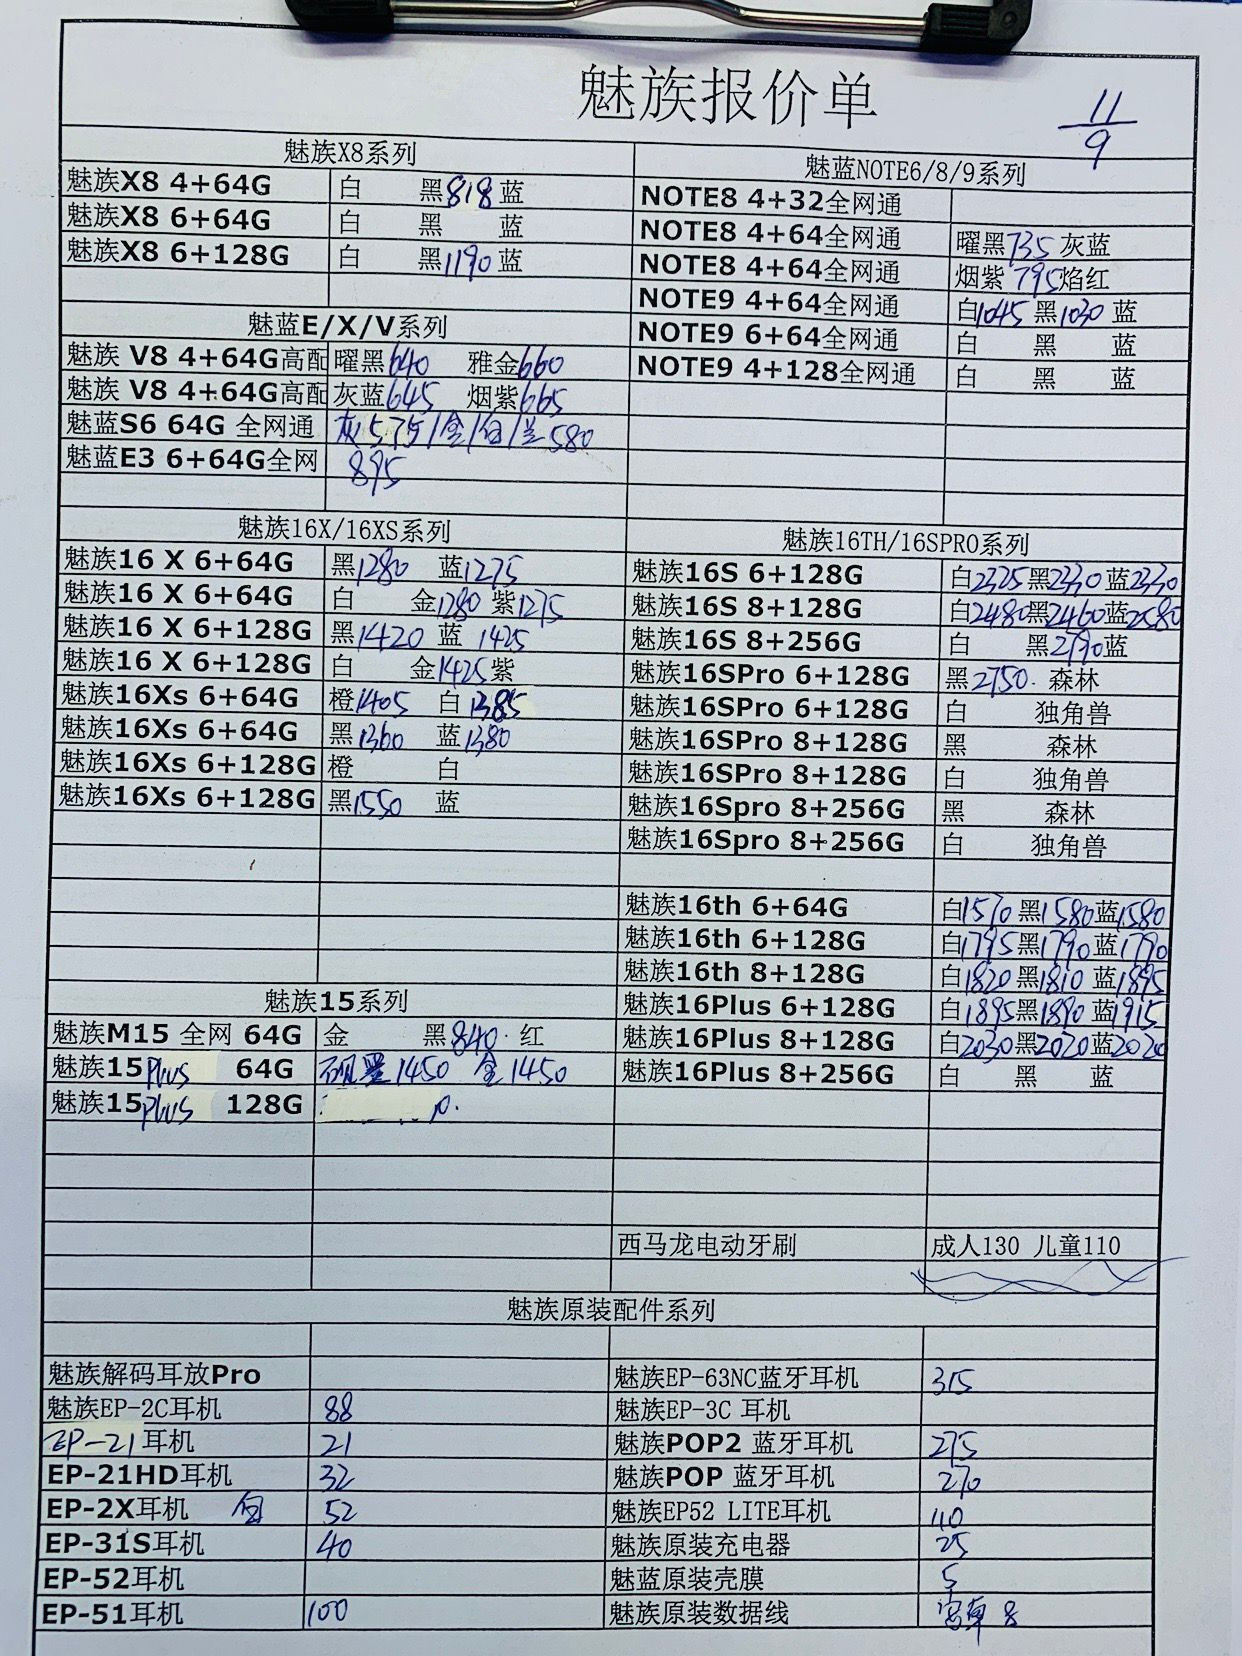 魅族报价单
11/9
魅族X8系列
魅族X8 4+64G 白 黑818 蓝
魅族X8 6+64G 白 黑 蓝
魅族X8 6+128G 白 黑1190 蓝
魅蓝E/X/V系列
魅族 V8 4+64G高配 曜黑640 雅金660
魅族 V8 4+64G高配 灰蓝645 烟紫665
魅蓝S6 64G 全网通 灰575/金/白/兰580
魅蓝E3 6+64G全网 895
魅蓝NOTE6/8/9系列
NOTE8 4+32全网通
NOTE8 4+64全网通 曜黑735 灰蓝
NOTE8 4+64全网通 烟紫795焰红
NOTE9 4+64全网通 白1045 黑1030 蓝
NOTE9 6+64全网通 白 黑 蓝
NOTE9 4+128全网通 白 黑 蓝
魅族16X/16XS系列
魅族16 X 6+64G 黑1280 蓝1275
魅族16 X 6+64G 白 金1280 紫1275
魅族16 X 6+128G 黑1420 蓝 1425
魅族16 X 6+128G 白 金1425紫
魅族16Xs 6+64G 橙1405 白1385
魅族16Xs 6+64G 黑1360 蓝1380
魅族16Xs 6+128G 橙 白
魅族16Xs 6+128G 黑1550 蓝
魅族16TH/16SPRO系列
魅族16S 6+128G 白2325黑2330蓝2330
魅族16S 8+128G 白2480黑2460蓝2580
魅族16S 8+256G 白 黑2790蓝
魅族16SPro 6+128G 黑2750. 森林
魅族16SPro 6+128G 白 独角兽
魅族16SPro 8+128G 黑 森林
魅族16SPro 8+128G 白 独角兽
魅族16Spro 8+256G 黑 森林
魅族16Spro 8+256G 白 独角兽
魅族16th 6+64G 白1570 黑1580蓝1580
魅族16th 6+128G 白1795黑1790蓝1790
魅族16th 8+128G 白1820黑1810 蓝1895
魅族16Plus 6+128G 白1895黑1890蓝1915
魅族16Plus 8+128G 白2030黑2020蓝2020
魅族16Plus 8+256G 白 黑 蓝
魅族15系列
魅族M15 全网 64G 金 黑840. 红
魅族15Plus 64G 砚墨1450 金1450
魅族15Plus 128G
西马龙电动牙刷 成人130 儿童110
魅族原装配件系列
魅族解码耳放Pro
魅族EP-2C耳机 88
EP-21耳机 21
EP-21HD耳机 32
EP-2X耳机 白 52
EP-31S耳机 40
EP-52耳机
EP-51耳机 100
魅族EP-63NC蓝牙耳机 315
魅族EP-3C 耳机
魅族POP2 蓝牙耳机 275
魅族POP 蓝牙耳机 270
魅族EP52 LITE耳机 110
魅族原装充电器 25
魅蓝原装壳膜 5
魅族原装数据线 8